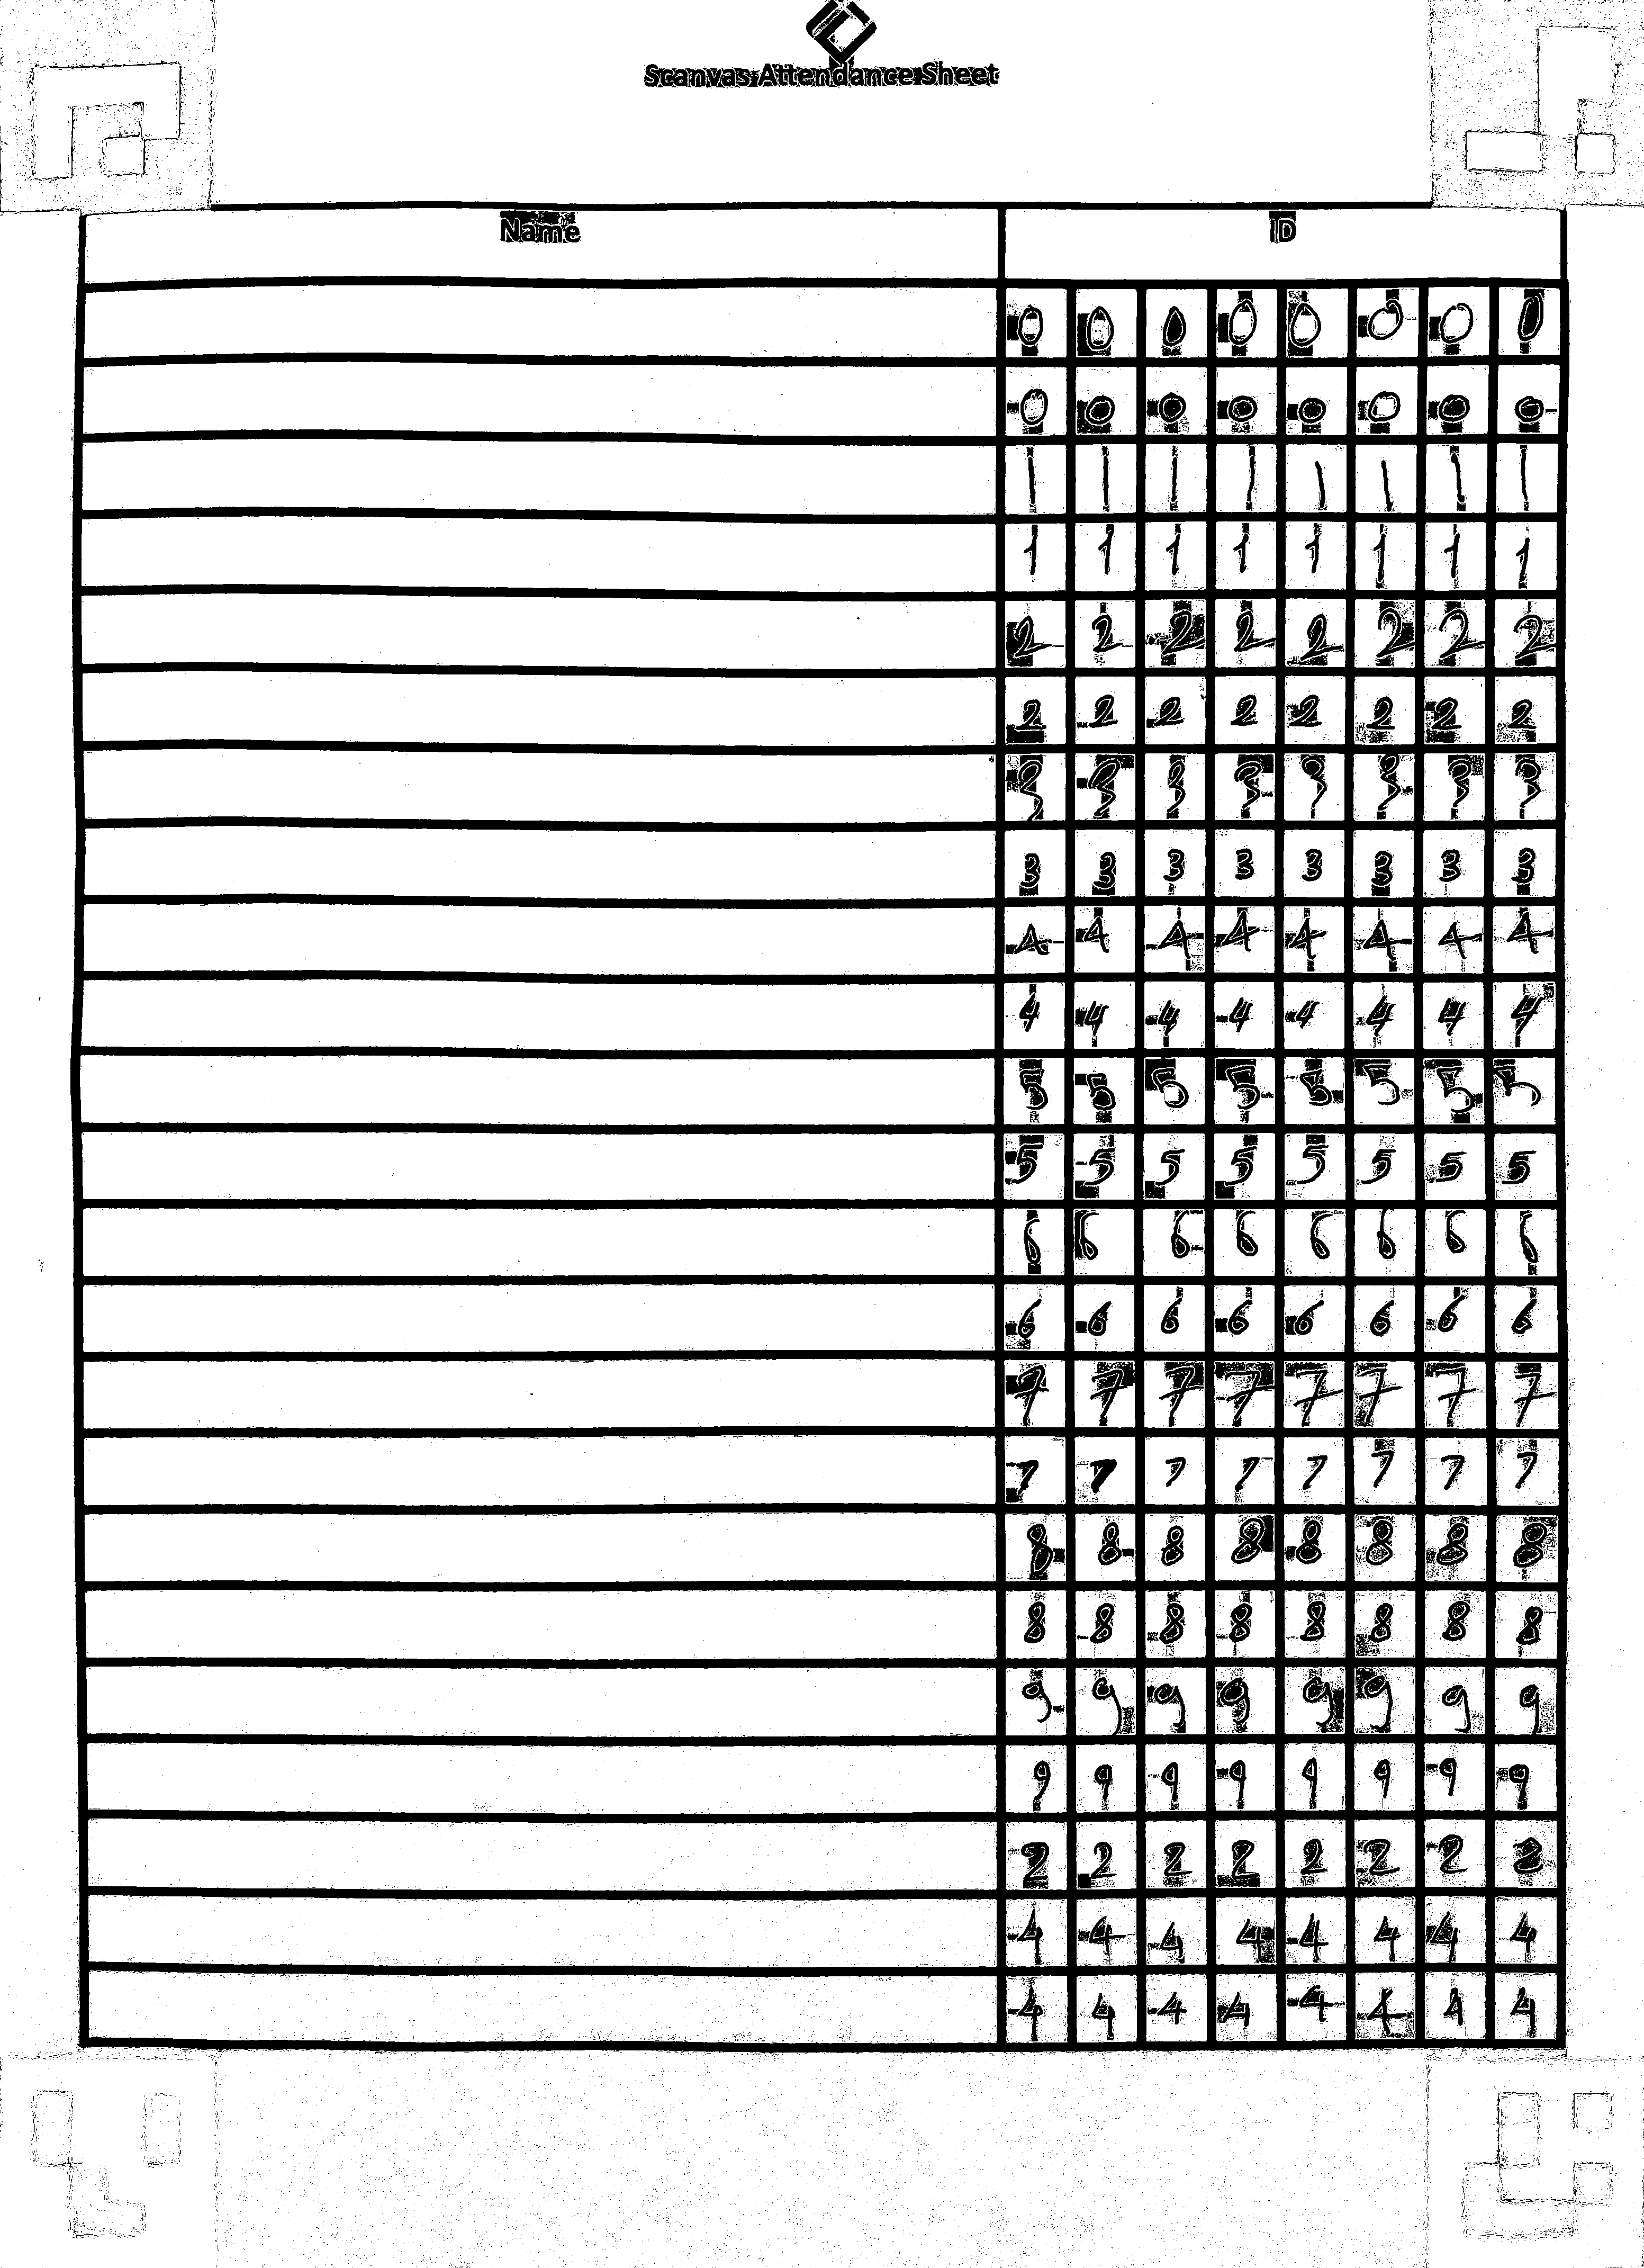 Scanvas Attendance Sheet
Name ID
0 0 0 0 0 0 0 0
0 0 0 0 0 0 0 0
1 1 1 1 1 1 1 1
1 1 1 1 1 1 1 1
2 2 2 2 2 2 2 2
2 2 2 2 2 2 2 2
3 3 3 3 3 3 3 3
3 3 3 3 3 3 3 3
4 4 4 4 4 4 4 4
4 4 4 4 4 4 4 4
5 5 5 5 5 5 5 5
5 5 5 5 5 5 5 5
6 6 6 6 6 6 6 6
6 6 6 6 6 6 6 6
7 7 7 7 7 7 7 7
7 7 7 7 7 7 7 7
8 8 8 8 8 8 8 8
8 8 8 8 8 8 8 8
9 9 9 9 9 9 9 9
9 9 9 9 9 9 9 9
2 2 2 2 2 2 2 2
4 4 4 4 4 4 4 4
4 4 4 4 4 4 4 4